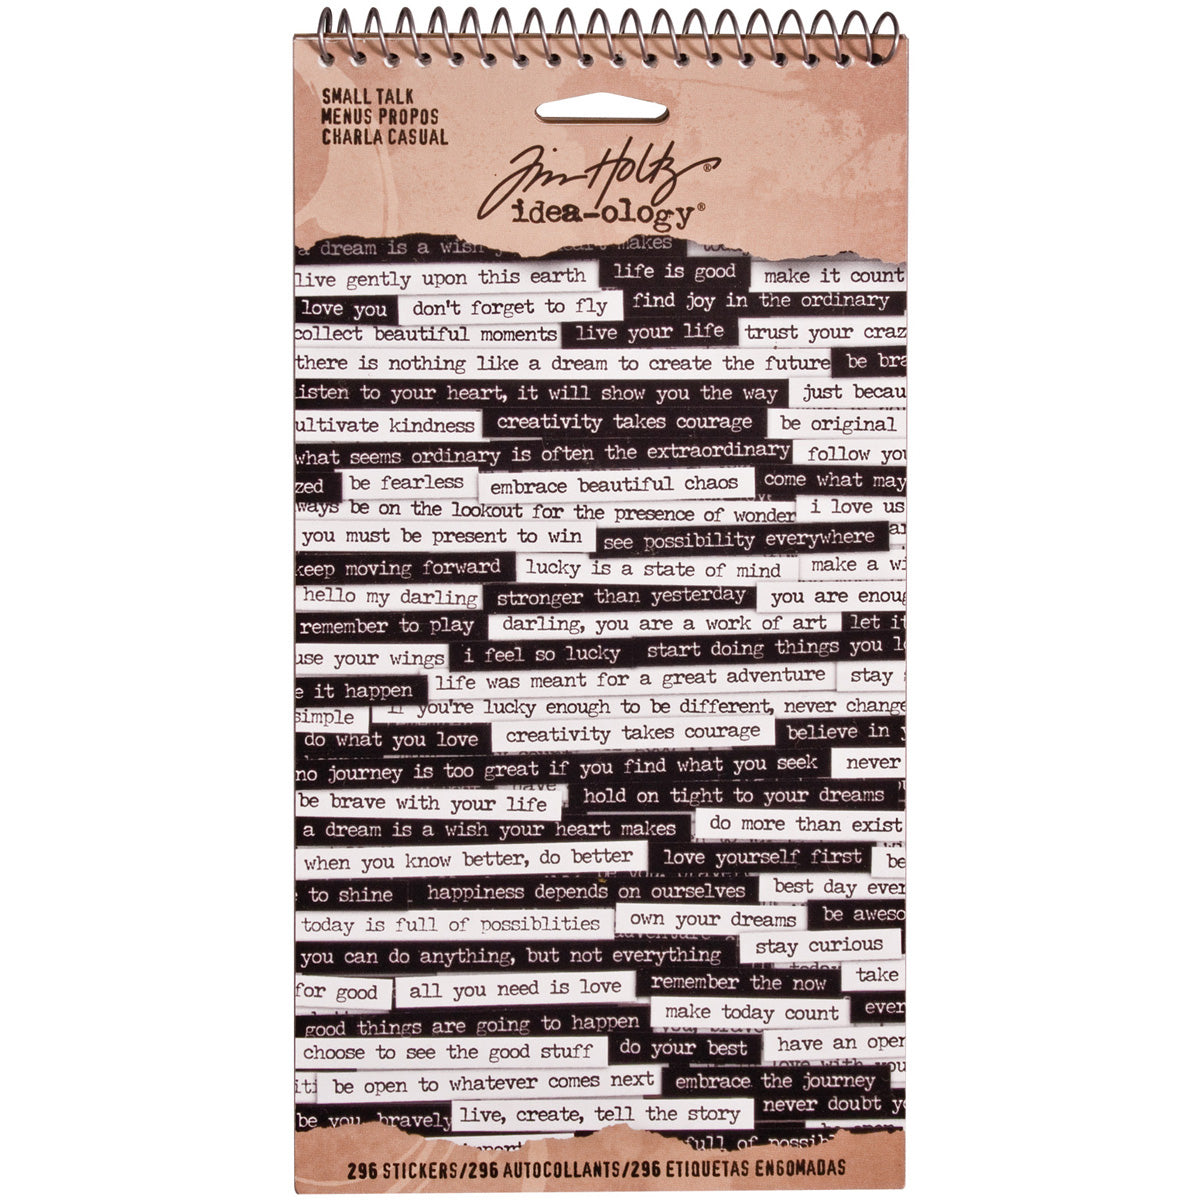 SMALL TALK
MENUS PROPOS
CHARLA CASUAL
Tim Holtz®
idea-ology®
a dream is a wish heart makes
live gently upon this earth life is good make it count
love you don't forget to fly find joy in the ordinary
collect beautiful moments live your life trust your craz
there is nothing like a dream to create the future be bra
listen to your heart, it will show you the way just becau
ultivate kindness creativity takes courage be original
what seems ordinary is often the extraordinary follow you
zed be fearless embrace beautiful chaos come what may
ways be on the lookout for the presence of wonder i love us
you must be present to win see possibility everywhere
keep moving forward lucky is a state of mind make a wi
hello my darling stronger than yesterday you are enoug
remember to play darling, you are a work of art let it
use your wings i feel so lucky start doing things you lo
e it happen life was meant for a great adventure stay
simple if you're lucky enough to be different, never change
do what you love creativity takes courage believe in y
no journey is too great if you find what you seek never
be brave with your life hold on tight to your dreams
a dream is a wish your heart makes do more than exist
when you know better, do better love yourself first be
to shine happiness depends on ourselves best day ever
today is full of possiblities own your dreams be aweso
you can do anything, but not everything stay curious
for good all you need is love remember the now take
good things are going to happen make today count ever
choose to see the good stuff do your best have an open
iti be open to whatever comes next embrace the journey
be you, bravely live, create, tell the story never doubt yo
full of possibl
296 STICKERS/296 AUTOCOLLANTS/296 ETIQUETAS ENGOMADAS